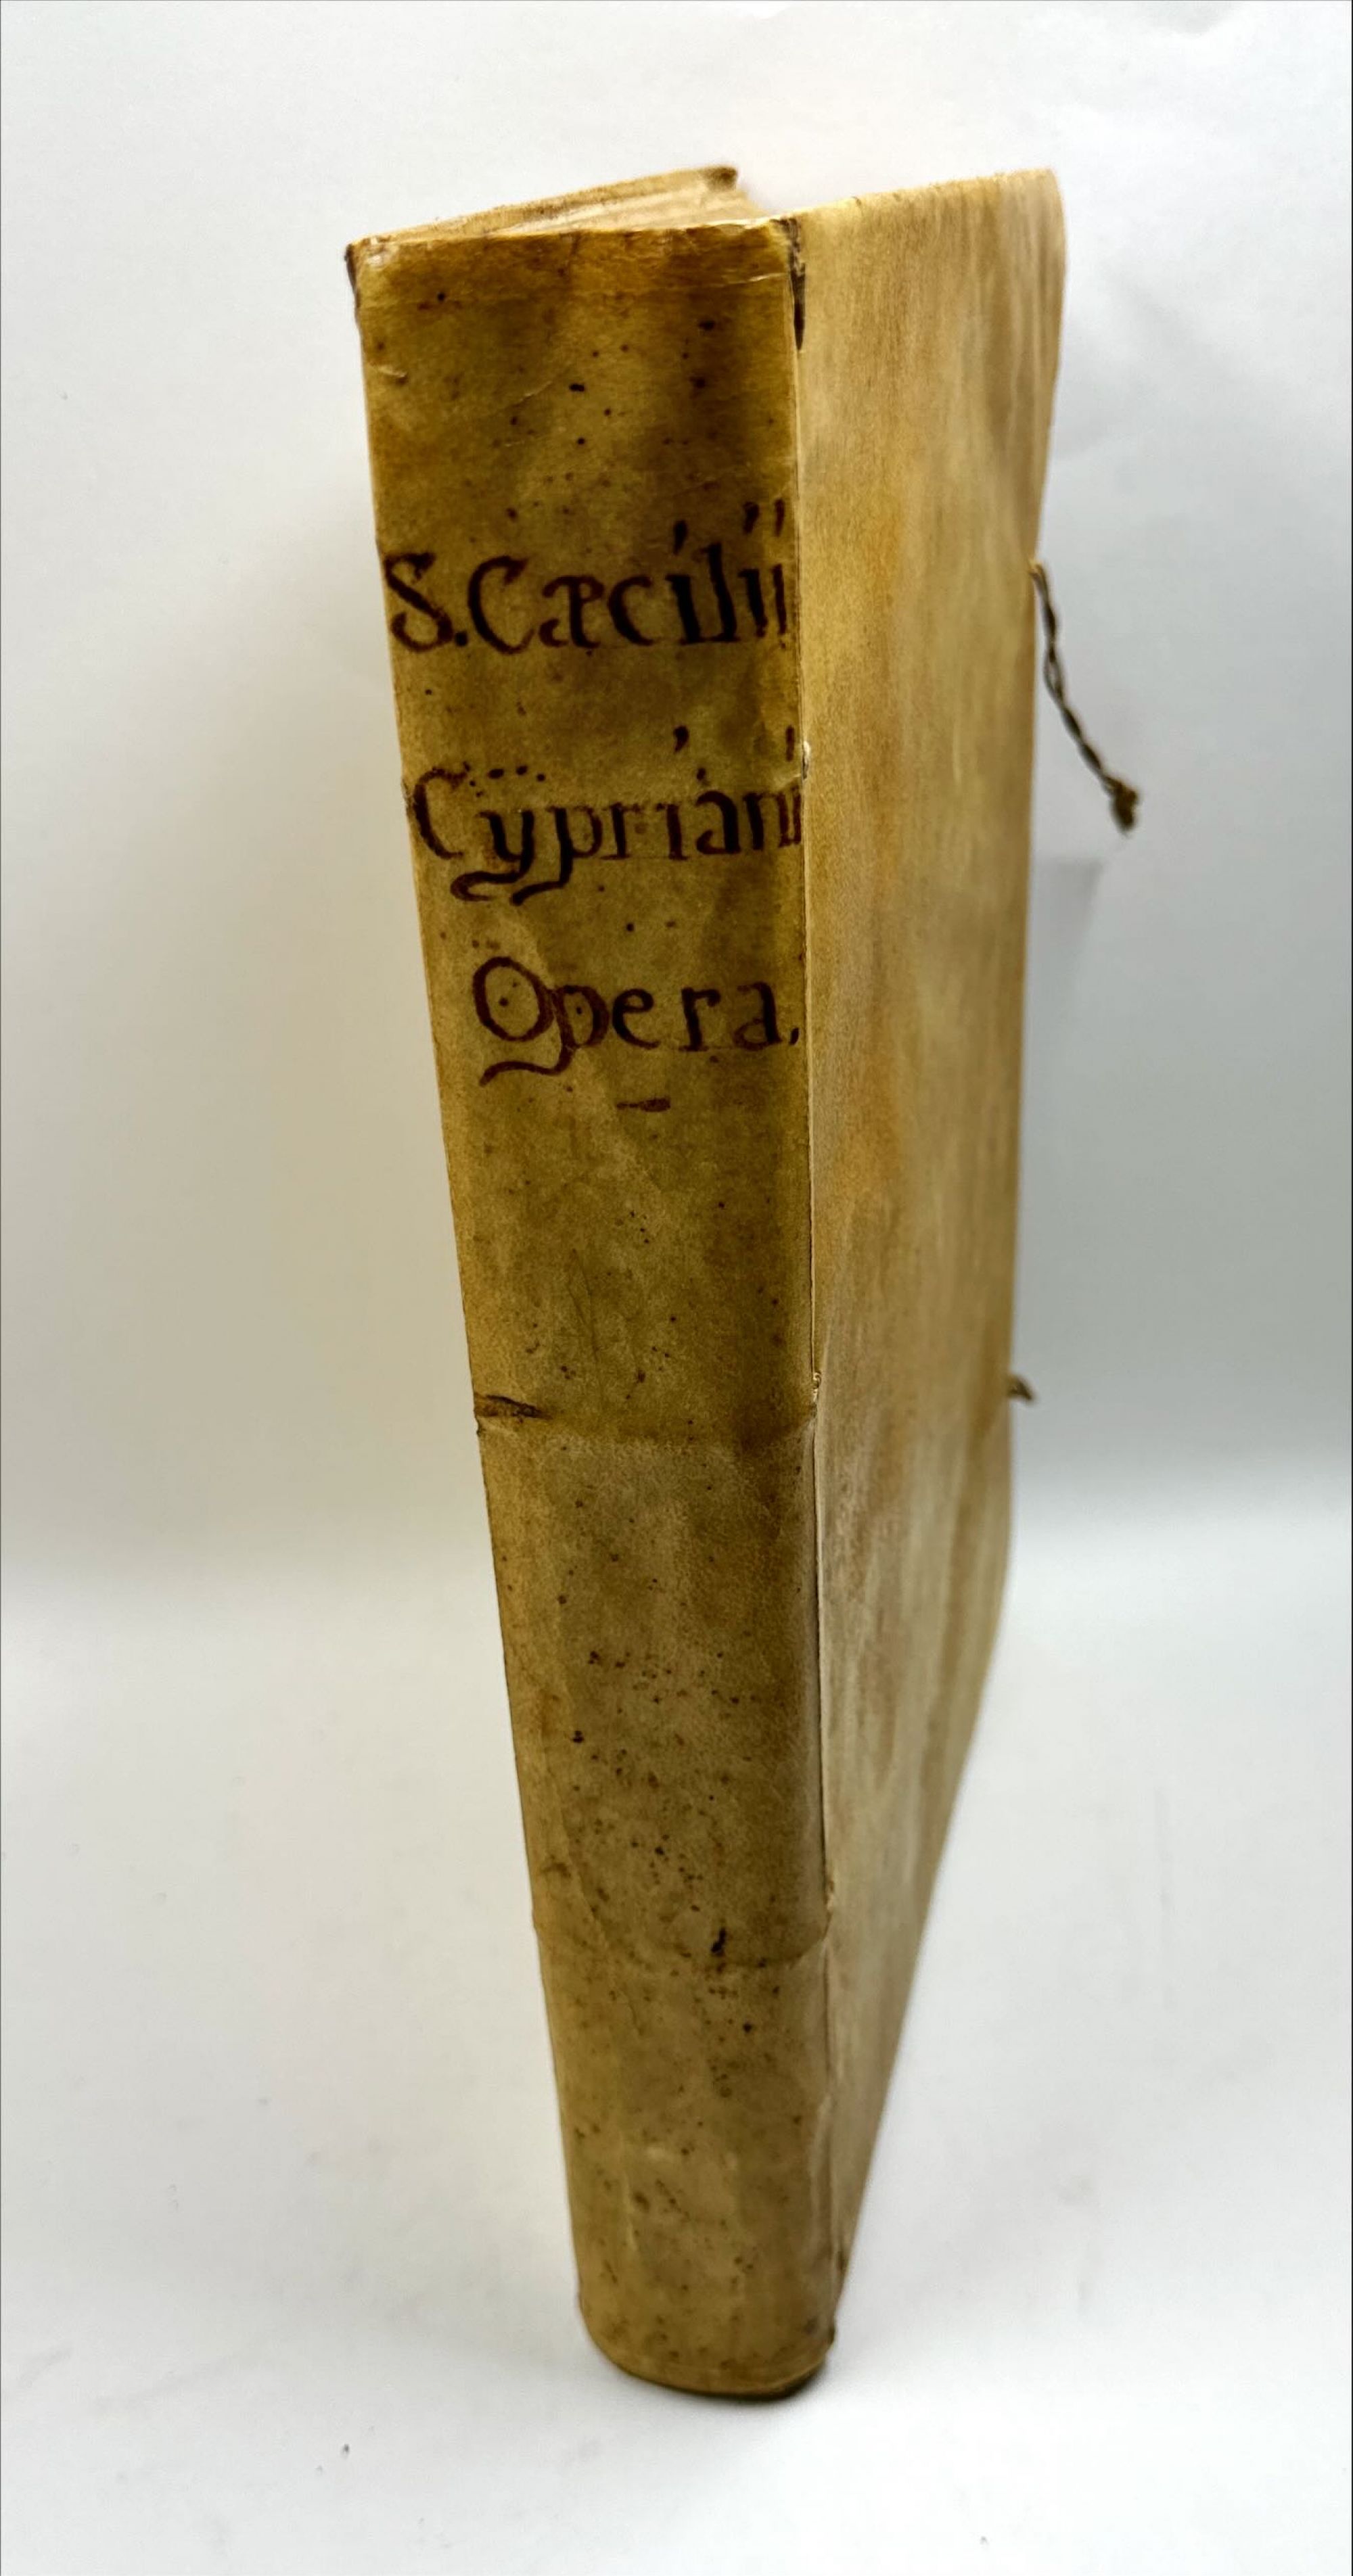 S. Cæcilii
Cÿpriani
Opera.